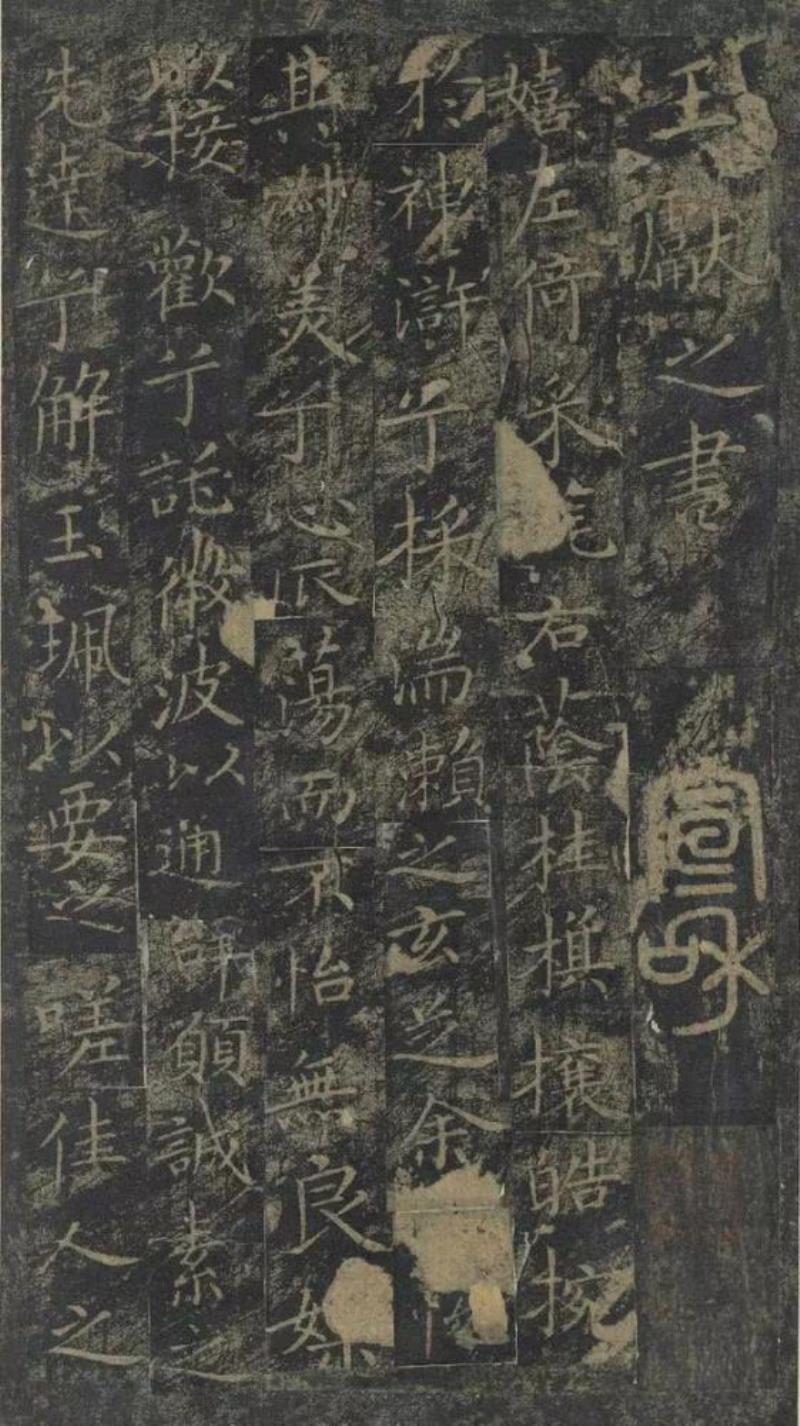 王獻之書
宣和
嬉左倚采旄右蔭桂旗攘皓捥
於神滸兮採湍瀨之玄芝余
其淑美兮心振蕩而不怡無良媒
以接歡兮託微波以通辭願誠素之
先達兮解玉珮以要之嗟佳人之